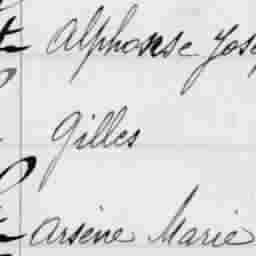 Alphonse Jose
Gilles
Arsène Marie